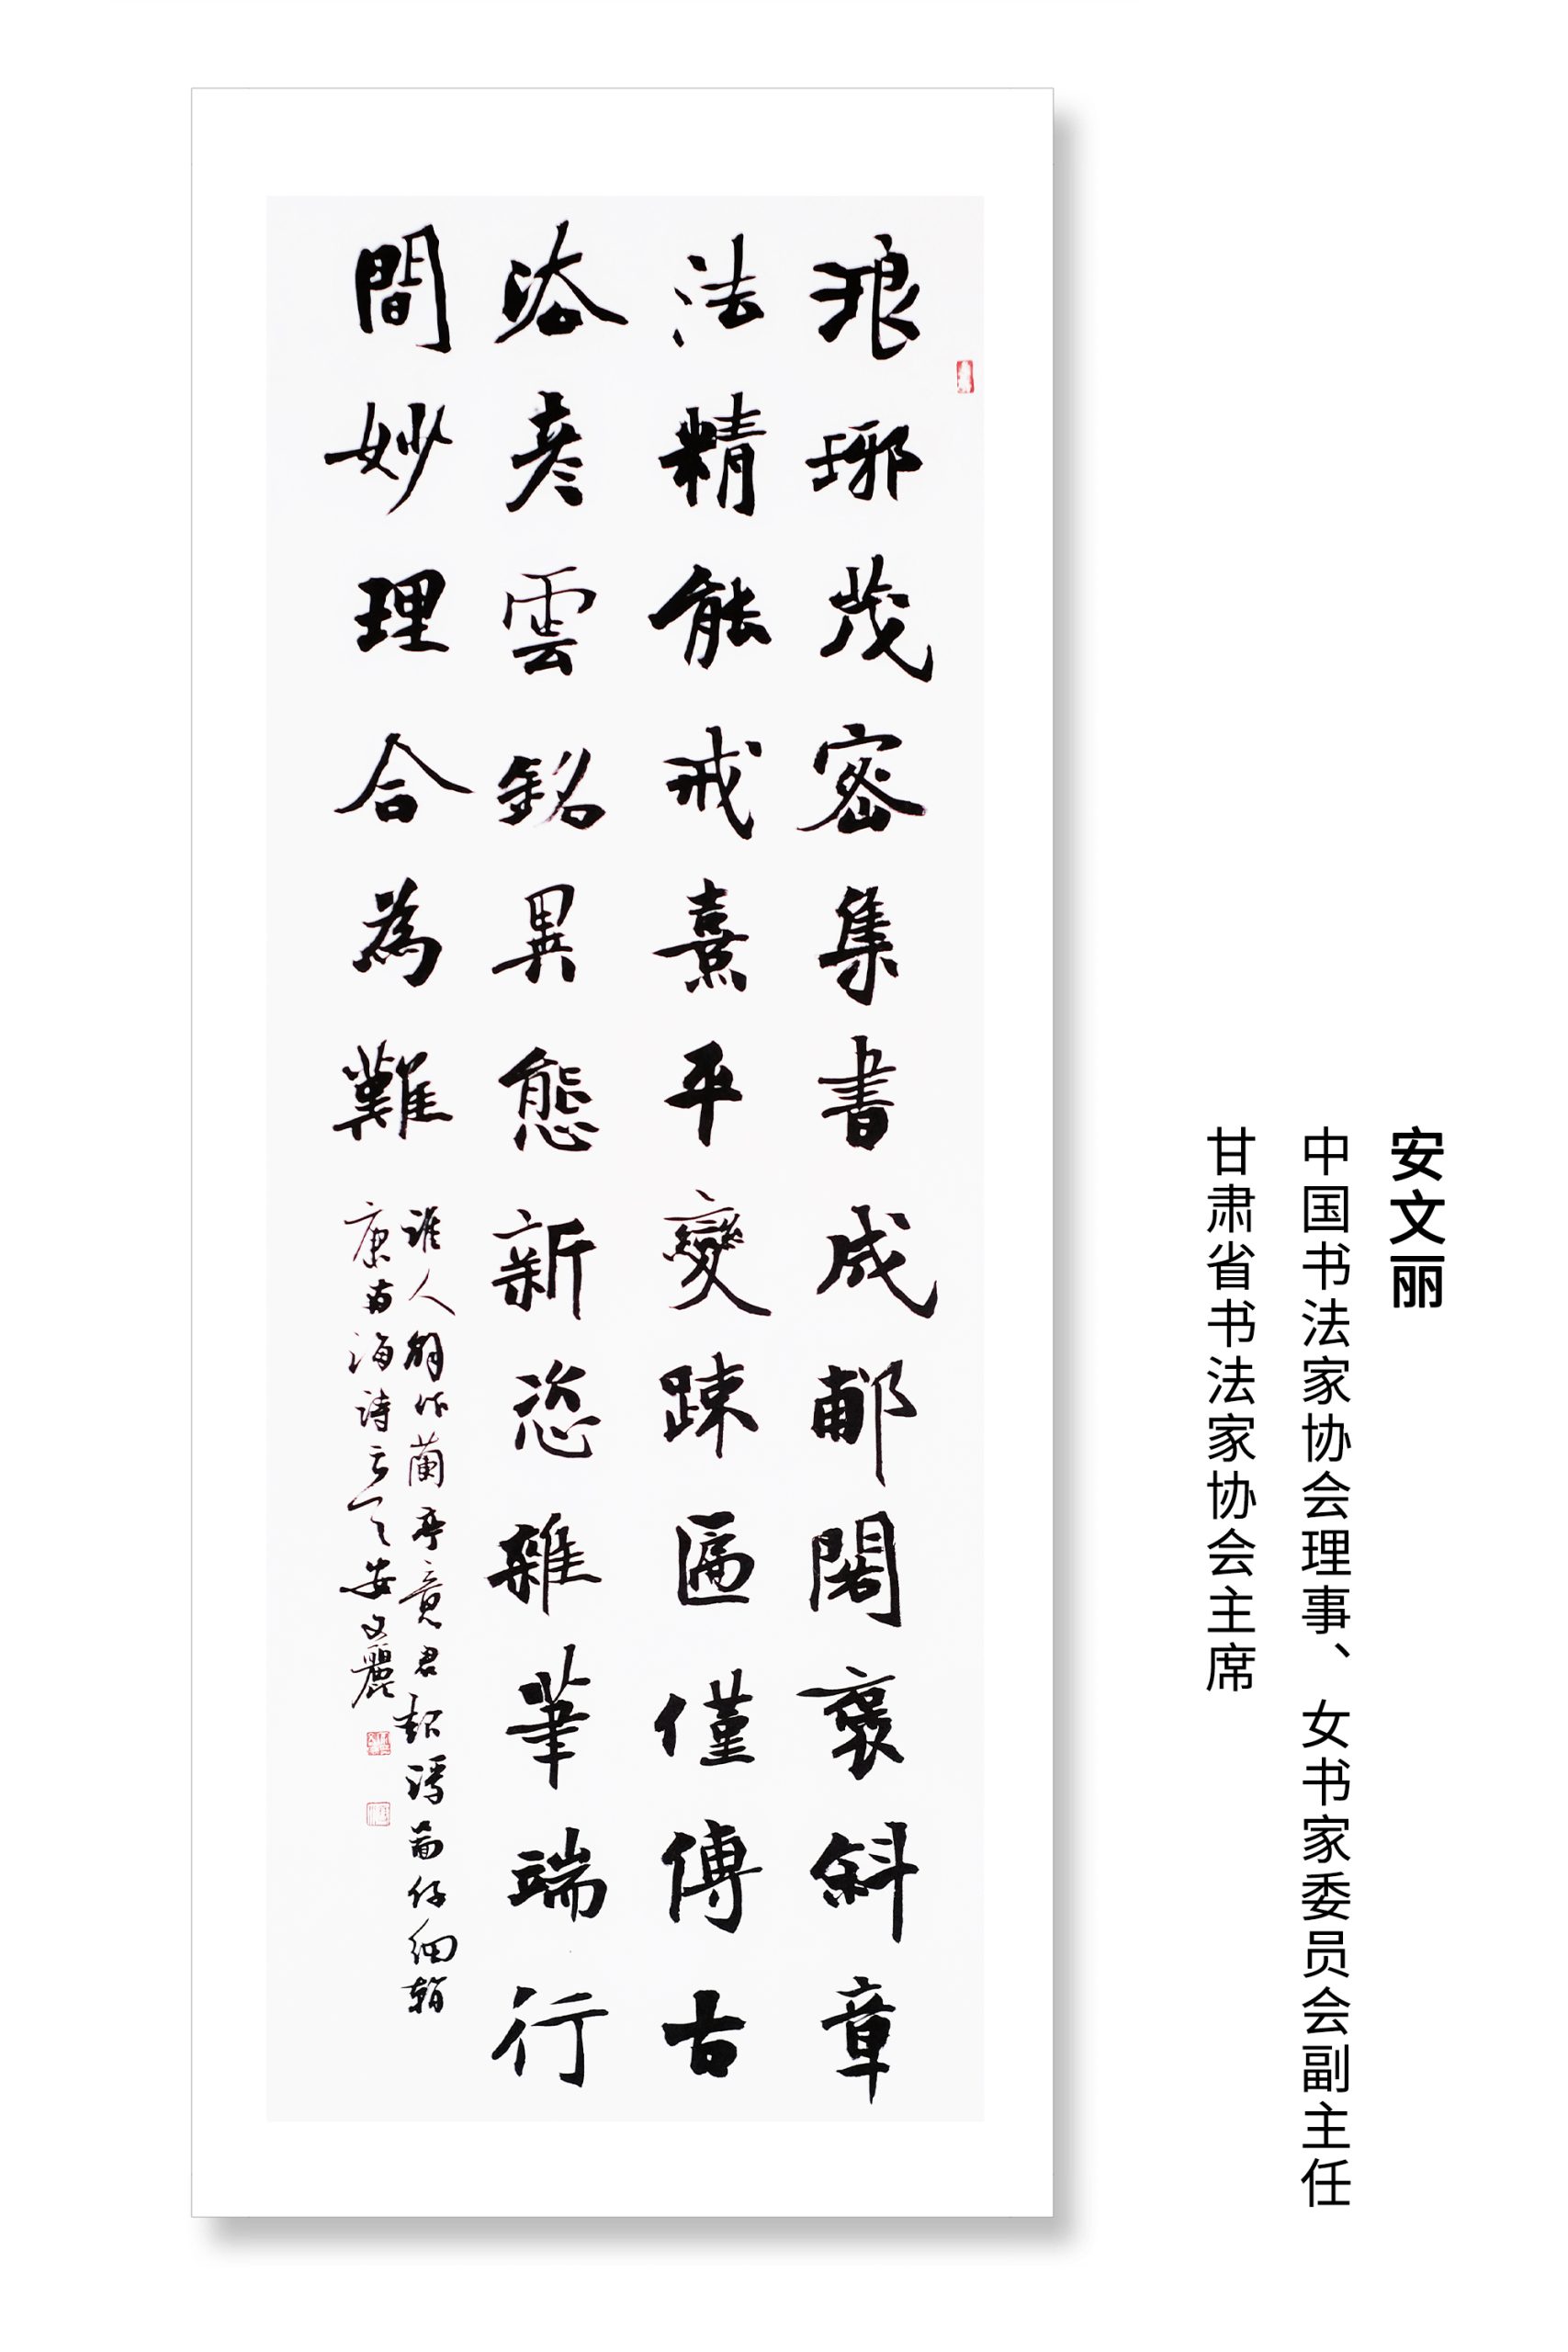 安文丽
中国书法家协会理事、女书家委员会副主任
甘肃省书法家协会主席
琅琊茂密集書成郙閣褒斜章
法精能戒熹平變疎匾僅傳古
浴彦雲銘異態新恣雜筆端行
間妙理合為難
誰人解作蘭亭君仔細
康南海詩安文麗